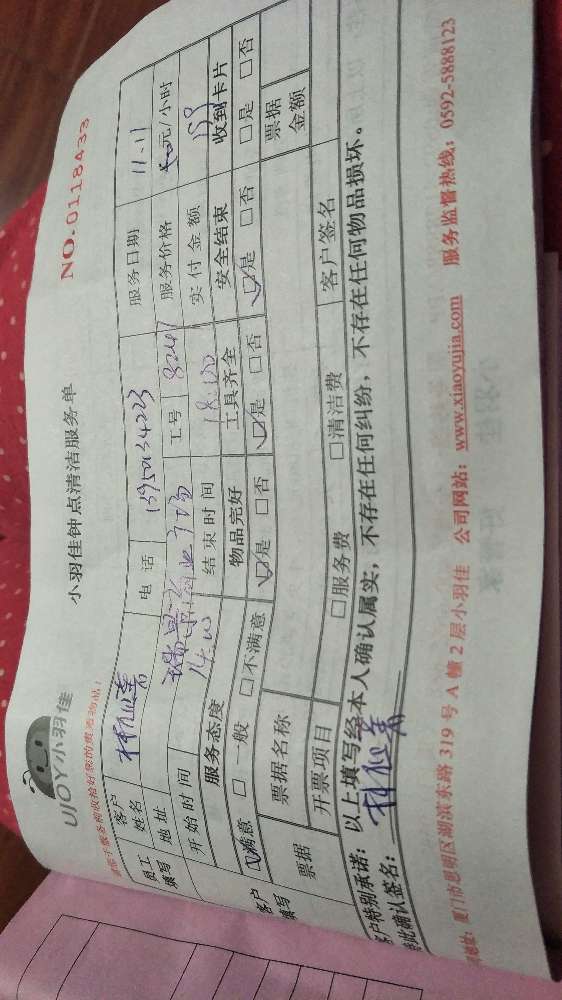 UJOY小羽佳
小羽佳钟点清洁服务单
NO.0118433
请您于服务前收拾好您的贵重物品！
员工填写
客户姓名 林仙美 电话 服务日期 11.11
地址 瑞景商业广场 工号 8247 服务价格 元/小时
开始时间 14:00 结束时间 18:00 实付金额
客户填写
服务态度 物品完好 工具齐全 安全结束 收到卡片
☑满意 □一般 □不满意 ☑是 □否 ☑是 □否 ☑是 □否 □是 □否
票据 票据名称 票据金额
开票项目 □服务费 □清洁费 客户签名
客户特别承诺：以上填写经本人确认属实，不存在任何纠纷，不存在任何物品损坏。
特此确认签名：林仙美
地址：厦门市思明区湖滨东路 319 号 A 幢 2 层小羽佳 公司网站：www.xiaoyujia.com 服务监督热线：0592-5888123